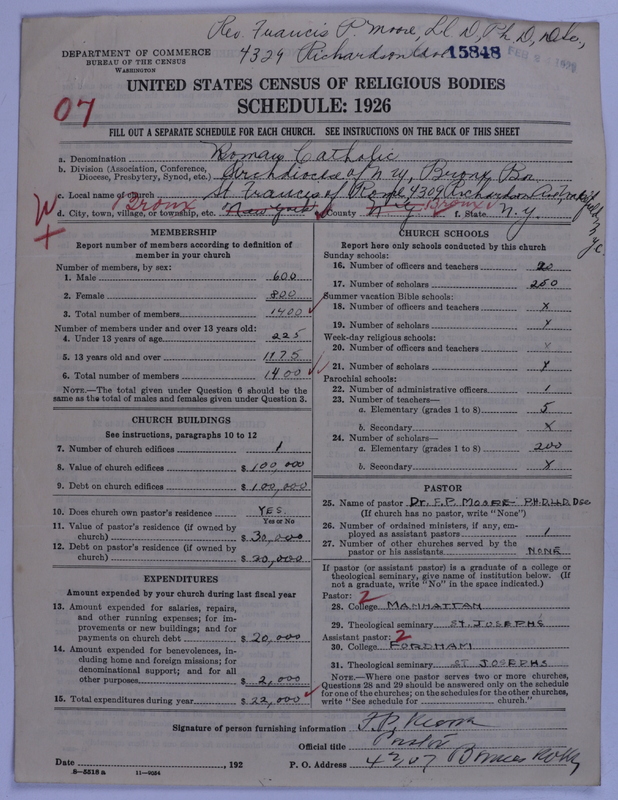 Rev. Francis P. Moore, LL D, Ph. D,
4329 Richardson Ave 15848
DEPARTMENT OF COMMERCE
BUREAU OF THE CENSUS
WASHINGTON
UNITED STATES CENSUS OF RELIGIOUS BODIES
SCHEDULE: 1926
07
FILL OUT A SEPARATE SCHEDULE FOR EACH CHURCH. SEE INSTRUCTIONS ON THE BACK OF THIS SHEET
a. Denomination Roman Catholic
b. Division (Association, Conference, Diocese, Presbytery, Synod, etc.) Archdiocese of N Y, Bronx Bo
c. Local name of church St Francis of Rome 4309 Richardson Ave
d. City, town, village, or township, etc. Bronx New York County N.Y. Bronx f. State N.Y.
MEMBERSHIP
Report number of members according to definition of member in your church
Number of members, by sex:
1. Male 600
2. Female 800
3. Total number of members 1400
Number of members under and over 13 years old:
4. Under 13 years of age 225
5. 13 years old and over 1175
6. Total number of members 1400
NOTE.—The total given under Question 6 should be the same as the total of males and females given under Question 3.
CHURCH BUILDINGS
See instructions, paragraphs 10 to 12
7. Number of church edifices 1
8. Value of church edifices $ 100,000
9. Debt on church edifices $ 100,000
10. Does church own pastor's residence YES.
Yes or No
11. Value of pastor's residence (if owned by church) $ 30,000
12. Debt on pastor's residence (if owned by church) $ 20,000
EXPENDITURES
Amount expended by your church during last fiscal year
13. Amount expended for salaries, repairs, and other running expenses; for improvements or new buildings; and for payments on church debt $ 20,000
14. Amount expended for benevolences, including home and foreign missions; for denominational support; and for all other purposes $ 2,000
15. Total expenditures during year $ 22,000
CHURCH SCHOOLS
Report here only schools conducted by this church
Sunday schools:
16. Number of officers and teachers 20
17. Number of scholars 250
Summer vacation Bible schools:
18. Number of officers and teachers X
19. Number of scholars X
Week-day religious schools:
20. Number of officers and teachers X
21. Number of scholars X
Parochial schools:
22. Number of administrative officers 1
23. Number of teachers—
a. Elementary (grades 1 to 8) 5
b. Secondary X
24. Number of scholars—
a. Elementary (grades 1 to 8) 200
b. Secondary X
PASTOR
25. Name of pastor Dr. F.P. MOORE PH.D. LL.D. DSC
(If church has no pastor, write "None")
26. Number of ordained ministers, if any, employed as assistant pastors 1
27. Number of other churches served by the pastor or his assistants NONE
If pastor (or assistant pastor) is a graduate of a college or theological seminary, give name of institution below. (If not a graduate, write "No" in the space indicated.)
Pastor: 2
28. College MANHATTAN
29. Theological seminary ST. JOSEPHS
Assistant pastor: 2
30. College FORDHAM
31. Theological seminary ST JOSEPHS
NOTE.—Where one pastor serves two or more churches, Questions 28 and 29 should be answered only on the schedule for one of the churches; on the schedules for the other churches, write "See schedule for church."
Signature of person furnishing information F.P. Moore
Official title Pastor
Date , 192 P. O. Address 4307
8—5518 a 11—9064